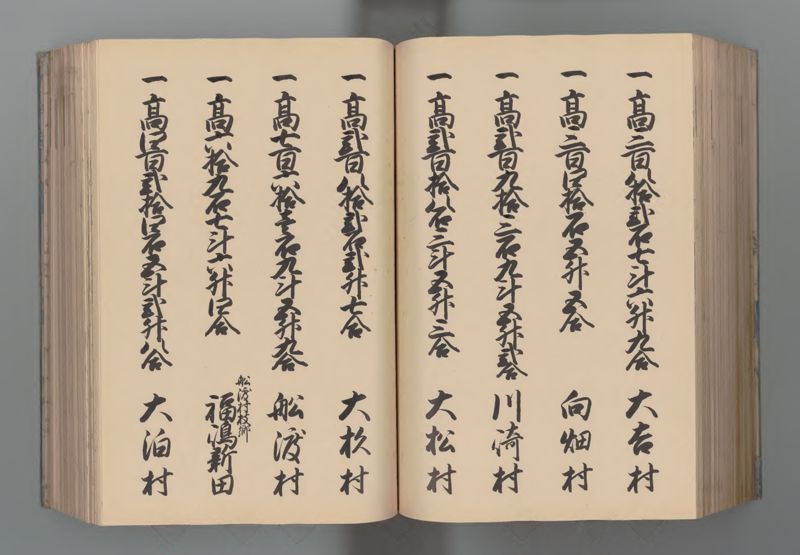 一 高三百八拾弐石七斗六升九合 大吉村
一 高三百四拾石五升五合 向畑村
一 高弐百九拾三石九斗五升弐合 川崎村
一 高弐百拾八石三斗五升三合 大松村
一 高弐百八拾弐石弐升七合 大杦村
一 高七百六拾壱石九斗五升九合 船渡村
一 高六拾九石七斗六升四合 船渡村枝郷 福嶋新田
一 高四百弐拾四石五斗弐升八合 大泊村